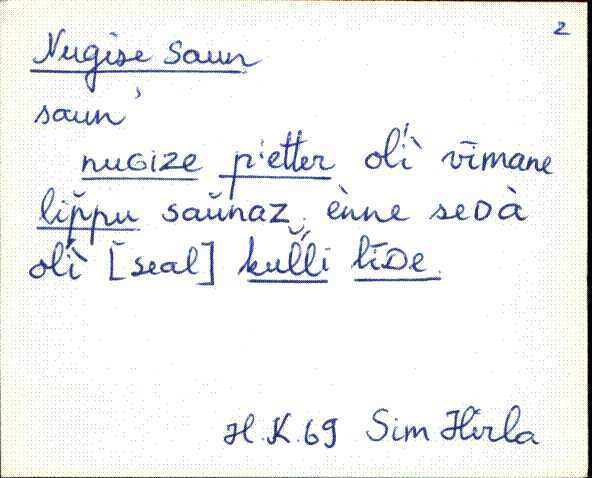 2
Nugise Saun
saun'
nuGize p'etter oĺì vīmane
lip̆pu saŭnaz. ènne seDà
oĺì [seal] kuĺ̆li līDe.
H.K.69 Sim Hirla